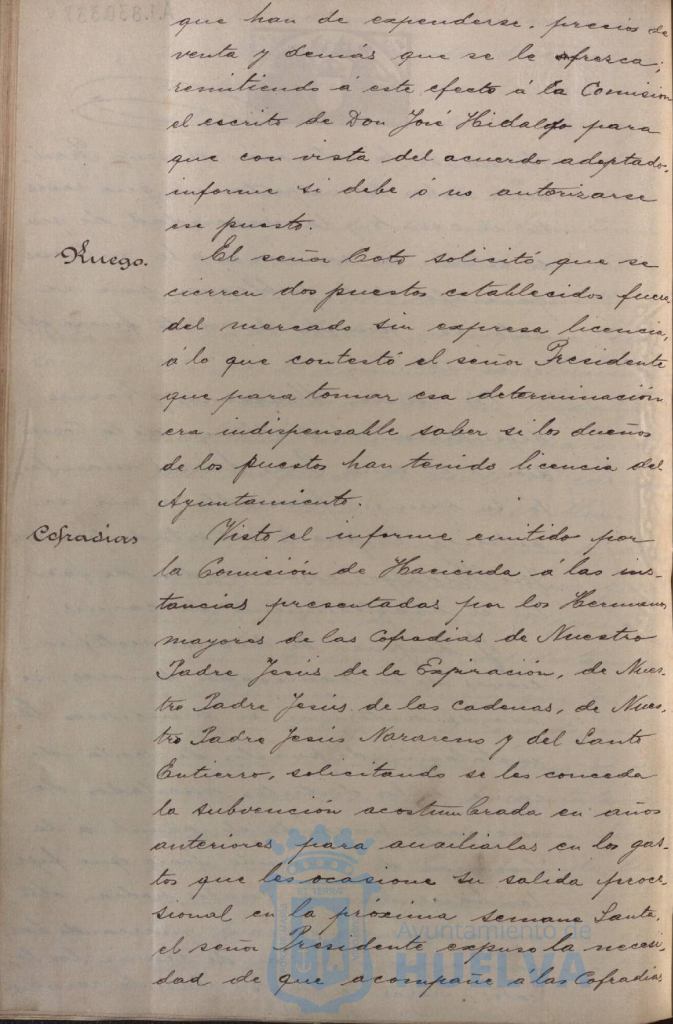 que han de expenderse, precios de
venta y demás que se le ofrezca;
remitiendo á este efecto á la Comisión
el escrito de Don José Hidalgo para
que con vista del acuerdo adoptado,
informe si debe ó no autorizarse
ese puesto.
Ruego.
El señor Coto solicitó que se
cierren dos puestos establecidos fuera
del mercado sin expresa licencia,
á lo que contestó el señor Presidente
que para tomar esa determinación
era indispensable saber si los dueños
de los puestos han tenido licencia del
Ayuntamiento.
Cofradias
Visto el informe emitido por
la Comisión de Hacienda á las ins-
tancias presentadas por los Hermanos
mayores de las Cofradias de Nuestro
Padre Jesús de la Expiración, de Nues-
tro Padre Jesús de las Cadenas, de Nues-
tro Padre Jesús Nazareno y del Santo
Entierro, solicitando se les conceda
la subvención acostumbrada en años
anteriores para auxiliarlas en los gas-
tos que les ocasione su salida proce-
sional en la próxima semana Santa,
el señor Presidente expuso la necesi-
dad de que acompañe a las Cofradias
Ayuntamiento de
HUELVA